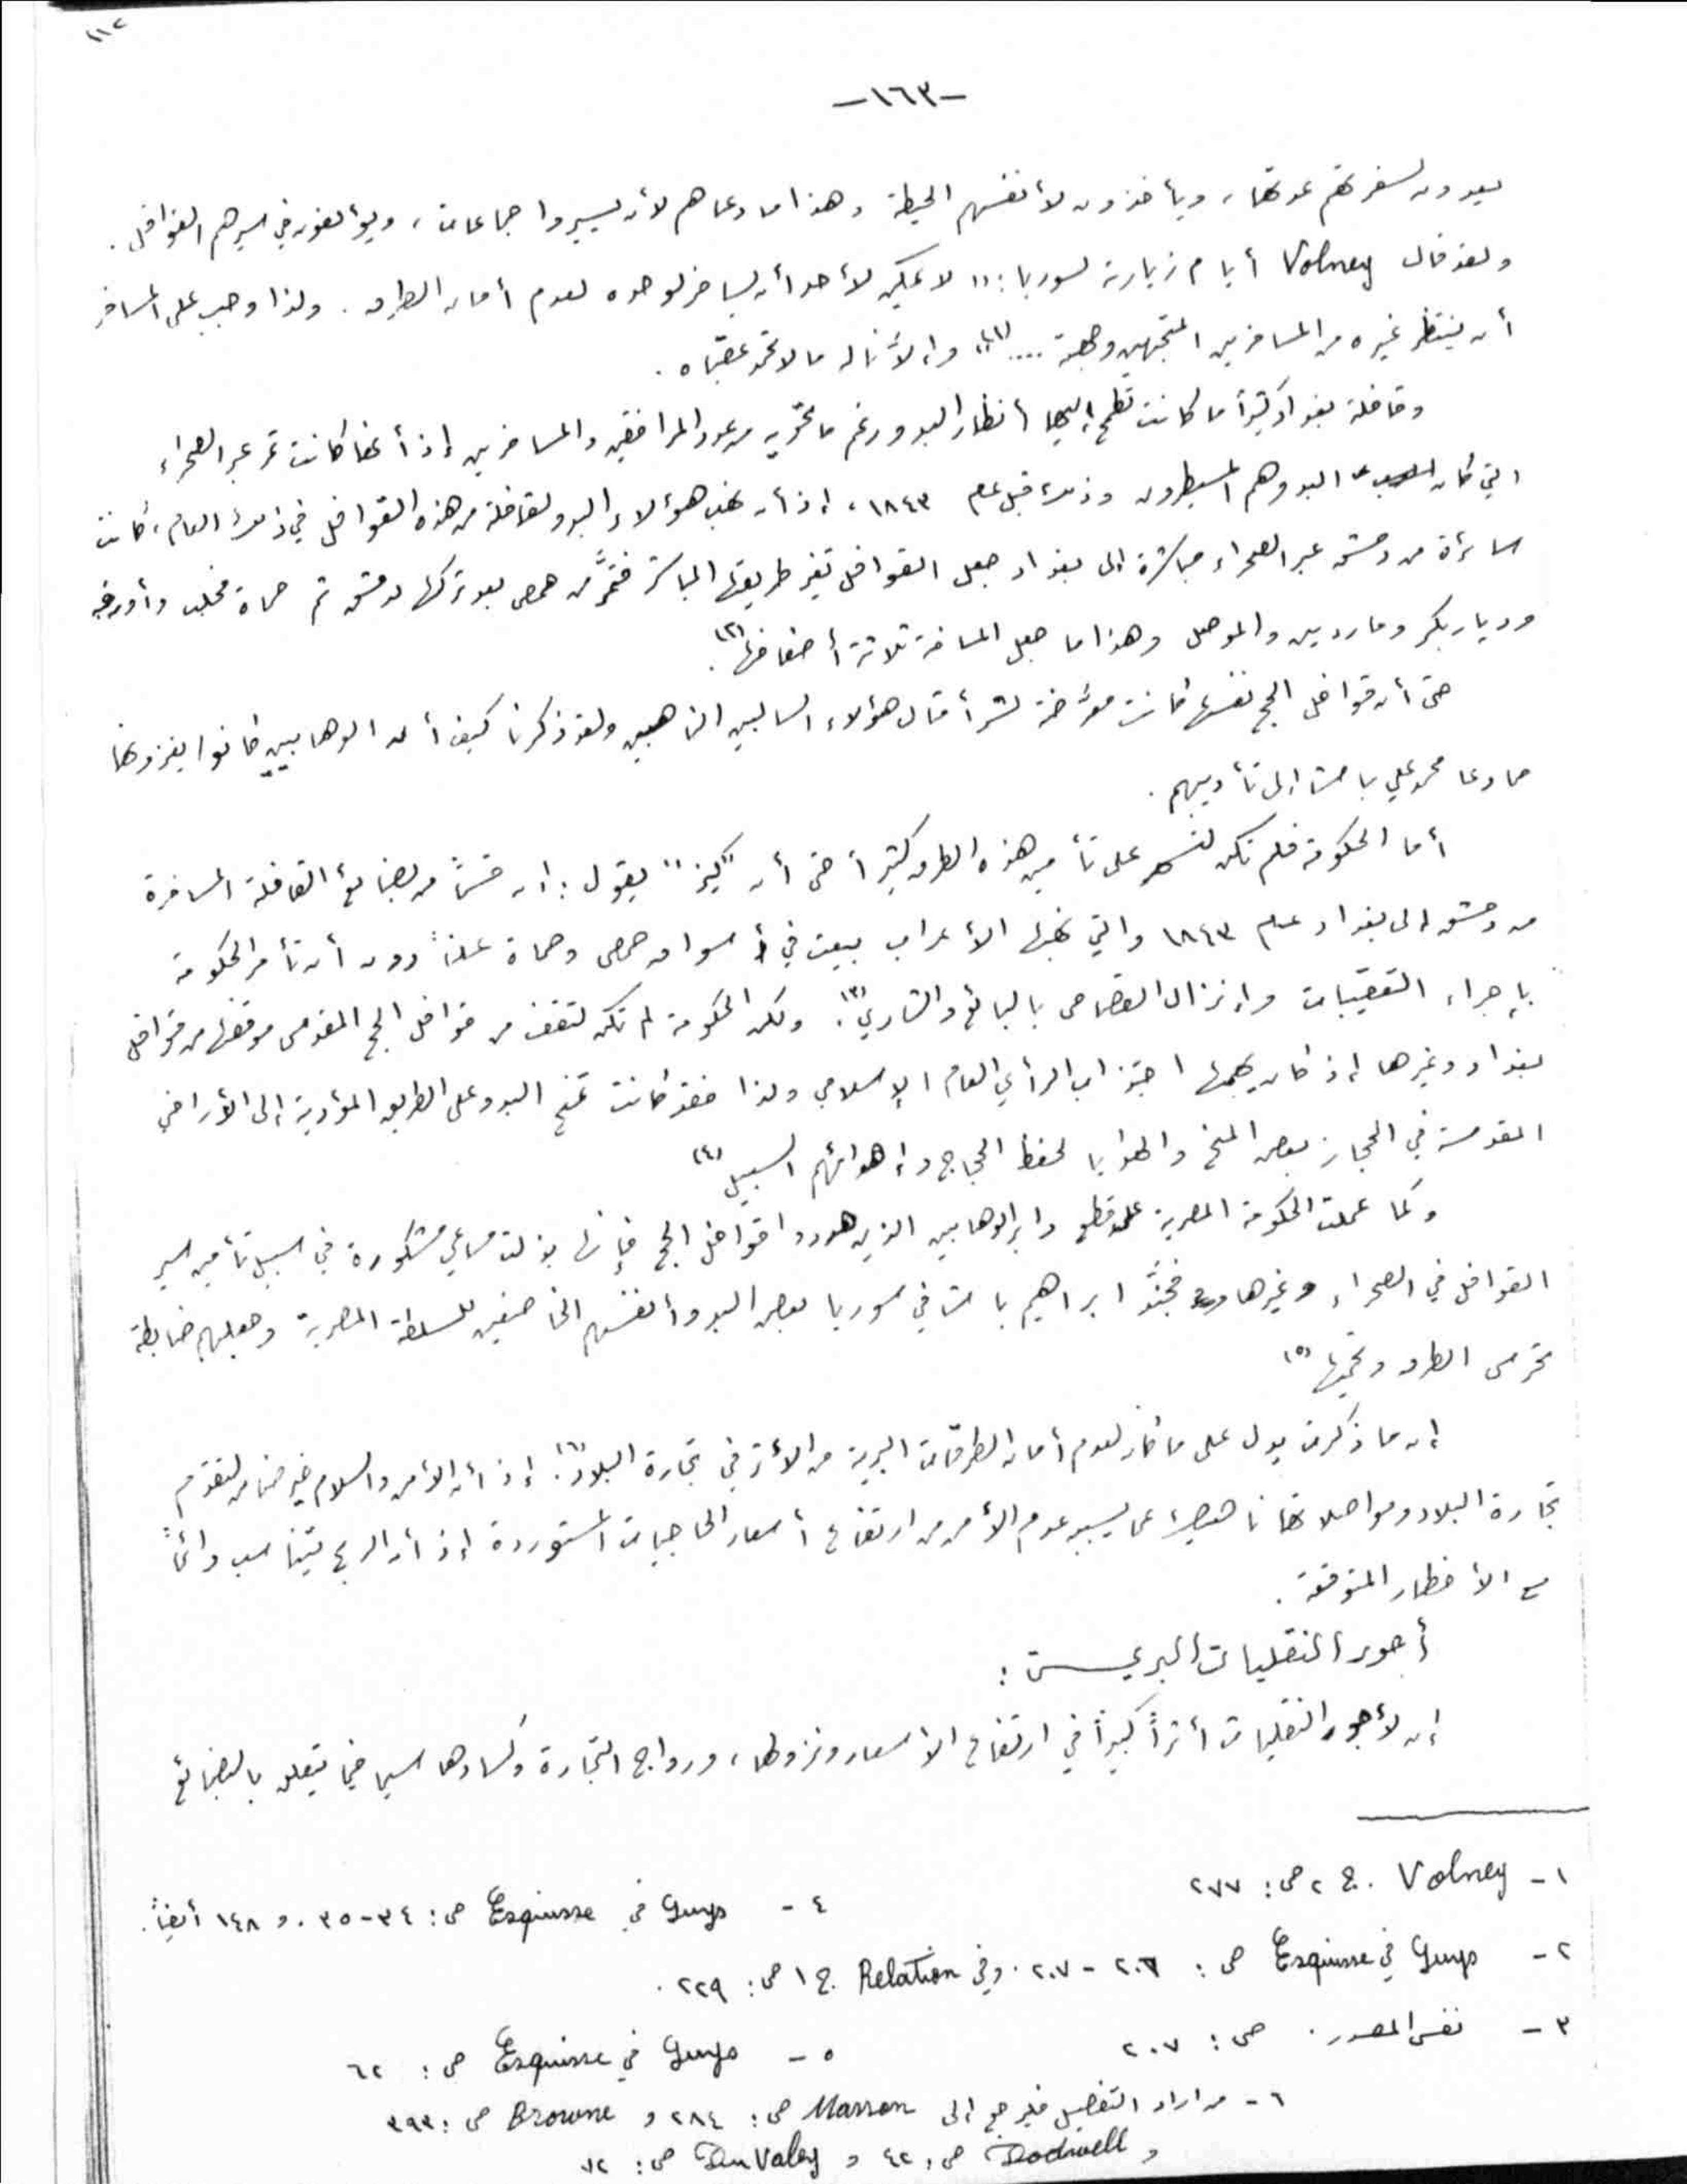 ١١٢
-١٦٣-
يعدون لسفرتهم عدتها، ويأخذون لأنفسهم الحيطة وهذا ما دعاهم لأن يسيروا جماعات، ويؤلفون في سيرهم القوافل.
ولقد قال Volney أيام زيارته لسوريا: "لا يمكن لأحد أن يسافر لوحده لعدم أمان الطرق. ولذا وجب على المسافر
أن ينتظر غيره من المسافرين المتجهين وجهته ...."(١) وإلا ناله ما لا تحمد عقباه.
وقافلة بغداد كثيراً ما كانت تطمح إليها أنظار البدو ورغم ما تحويه من عدد المرافقين والمسافرين إذ أنها كانت تمر عبر الصحراء
التي كان البدو هم المسيطرون وذلك قبل عام ١٨٤٣، إذ أن نهب هؤلاء البدو لقافلة من هذه القوافل في ذلك العام، كانت
سائرة من دمشق عبر الصحراء مباشرة إلى بغداد جعل القوافل تغير طريقها المباشر فتمرّ من حمص بعد تركها دمشق ثم حماة فحلب وأورفه
ودياربكر وماردين والموصل وهذا ما جعل المسافة ثلاثة أضعافها(٢).
حتى أن قوافل الحج نفسها كانت معرّضة لشر أمثال هؤلاء السالبين الناهبين ولقد ذكرنا كيف أن الوهابيين كانوا يغزونها
مما دعا محمد علي باشا إلى تأديبهم.
أما الحكومة فلم تكن لتسهر على تأمين هذه الطرق كثيراً حتى أن "كيز" يقول: إن قسماً من بضائع القافلة المسافرة
من دمشق إلى بغداد عام ١٨٤٣ والتي نهبها الأعراب بيعت في أسواق حمص وحماة علناً دون أن تأمر الحكومة
بإجراء التعقيبات وإنزال القصاص بالبائع والشاري(٣). ولكن الحكومة لم تكن لتقف من قوافل الحج المقدس موقفها من قوافل
بغداد وغيرها إذ كان يهمها اجتذاب الرأي العام الإسلامي ولذا فقد كانت تمنح البدو على الطريق المؤدية إلى الأراضي
المقدسة في الحجاز بعض المنح والهدايا لحفظ الحجاج وإهدائهم السبيل(٤)
وكما عملت الحكومة المصرية على قطع دابر الوهابيين الذين هددوا قوافل الحج فإنها بذلت مساعي مشكورة في سبيل تأمين سير
القوافل في الصحراء وغيرها فجنّد ابراهيم باشا في سوريا بعض البدو أنفسهم الخاضعين للسلطة المصرية وجعلهم ضابطة
تحرس الطرق وتحميها(٥)
إن ما ذكرت يدل على ما كان لعدم أمان الطرقات البرية من الأثر في تجارة البلاد(٦). إذ أن الأمن والسلام خير ضامن لتقدم
تجارة البلاد ومواصلاتها ناهيك عما يسببه عدم الأمن من ارتفاع أسعار الحاجيات المستوردة إذ أن الربح يتناسب دائماً
مع الأخطار المتوقعة.
أجور النقليات البرية:
إن لأجور النقليات أثراً كبيراً في ارتفاع الأسعار ونزولها، ورواج التجارة وكسادها سيما فيما يتعلق بالبضائع
١- Volney . ج ٢ ص: ٢٧٧
٢- Guys في Esquisse ص: ٢٠٦-٢٠٧. وفي Relation ج ١ ص: ٢٢٩.
٣- نفس المصدر. ص: ٢٠٧
٤- Guys في Esquisse ص: ٣٤-٣٥. و ١٤٨ أيضاً.
٥- Guys في Esquisse ص: ٦٢
٦- من اراد التفصيل فليرجع إلى Masson ص: ٢٨٤ و Browne ص: ٣٩٣
و Dodwell ص: ٤٢ و Du Valay ص: ٧٢